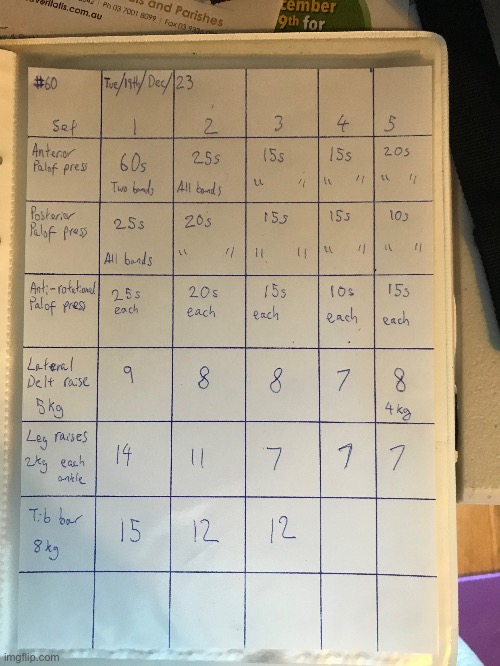 averilalls.com.au
Ph 03 7001 8099 Fax 03
ls and Parishes
cember
9th for
#60 Tue/19th/Dec/23
Set 1 2 3 4 5
Anterior
Palof press 60s 25s 15s 15s 20s
Two bands All bands " " " " " "
Posterior
Palof press 25s 20s 15s 15s 10s
All bands " " " " " " " "
Anti-rotational
Palof press 25s 20s 15s 10s 15s
each each each each each
Lateral
Delt raise 9 8 8 7 8
5kg 4kg
Leg raises
2kg each
ankle 14 11 7 7 7
Tib bar
8kg 15 12 12
imgflip.com